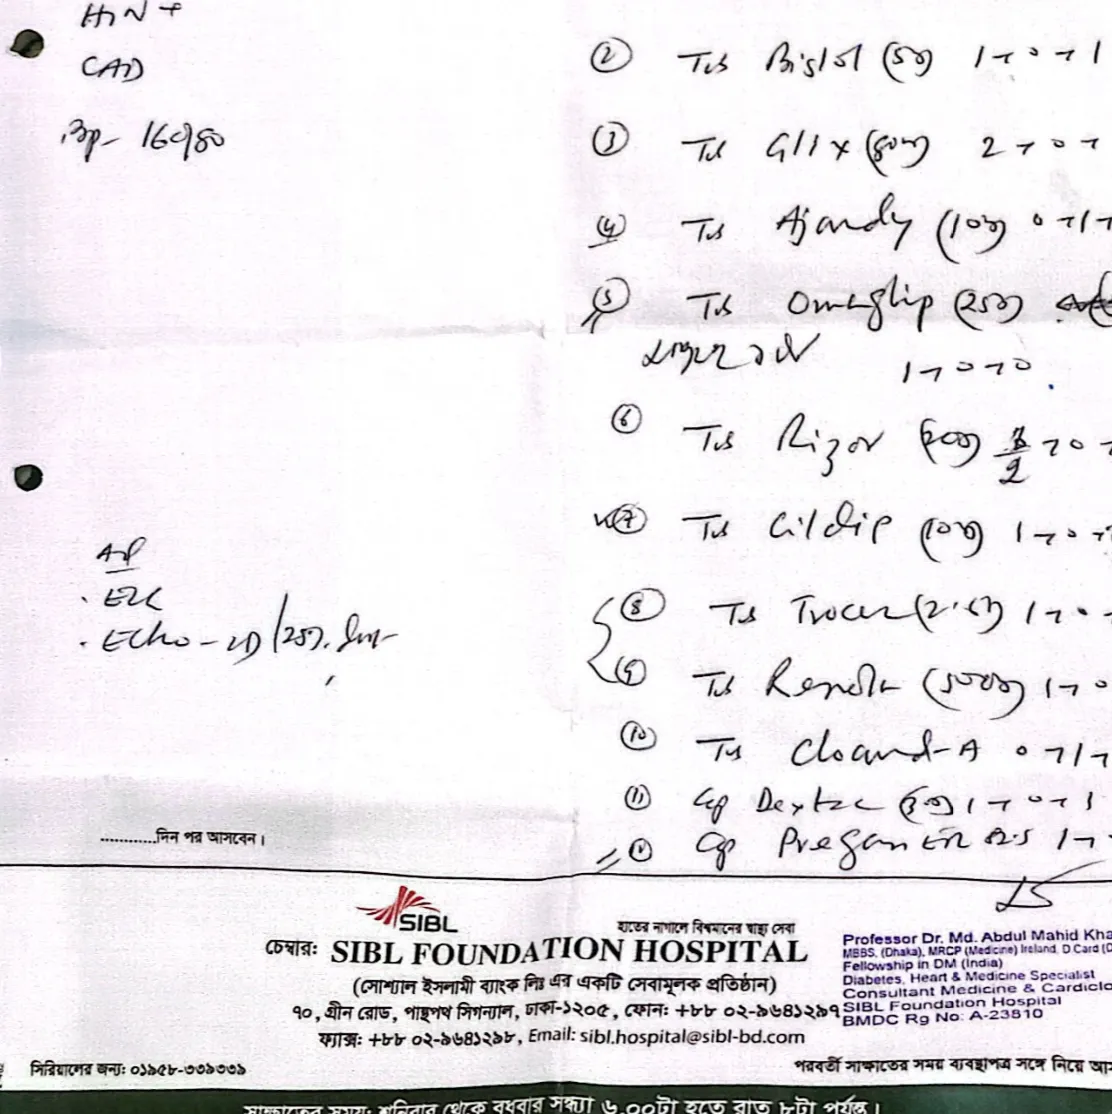 HTN +
CAD
Bp- 160/80
② Tab Bislol (5mg) 1+0+1
③ Tab Glix (80mg) 2+0+
④ Tab Ajardy (10mg) 0+1+
⑤ Tab Omaglip (25mg)
1+0+0
⑥ Tab Rizor (20mg) 1/2+0+
⑦ Tab Cildip (10mg) 1+0+
⑧ Tab Trocer (2.5mg) 1+0+
⑨ Tab (500mg) 1+0
⑩ Tab 0+1+
⑪ Cap (30mg) 1+0+1
⑫ Cap Pregan ER 82.5 1+
Adv
. ECG
. Echo-2D
............দিন পর আসবেন।
SIBL
হাতের নাগালে বিশ্বমানের স্বাস্থ্য সেবা
চেম্বার: SIBL FOUNDATION HOSPITAL
(সোশ্যাল ইসলামী ব্যাংক লিঃ এর একটি সেবামূলক প্রতিষ্ঠান)
৭০, গ্রীন রোড, পান্থপথ সিগন্যাল, ঢাকা-১২০৫, ফোন: +৮৮ ০২-৯৬৪১২৯৭
ফ্যাক্স: +৮৮ ০২-৯৬৪১২৯৮, Email: sibl.hospital@sibl-bd.com
Professor Dr. Md. Abdul Mahid Kha
MBBS, (Dhaka), MRCP (Medicine) Ireland, D.Card (D
Fellowship in DM (India)
Diabetes, Heart & Medicine Specialist
Consultant Medicine & Cardiolo
SIBL Foundation Hospital
BMDC Rg No: A-23810
সিরিয়ালের জন্য: ০১৯৫৮-৩৩৯৩৩৯
পরবর্তী সাক্ষাতের সময় ব্যবস্থাপত্র সঙ্গে নিয়ে আস
সাক্ষাতের সময়: শনিবার থেকে বুধবার সন্ধ্যা ৬.০০টা হতে রাত ৮টা পর্যন্ত।